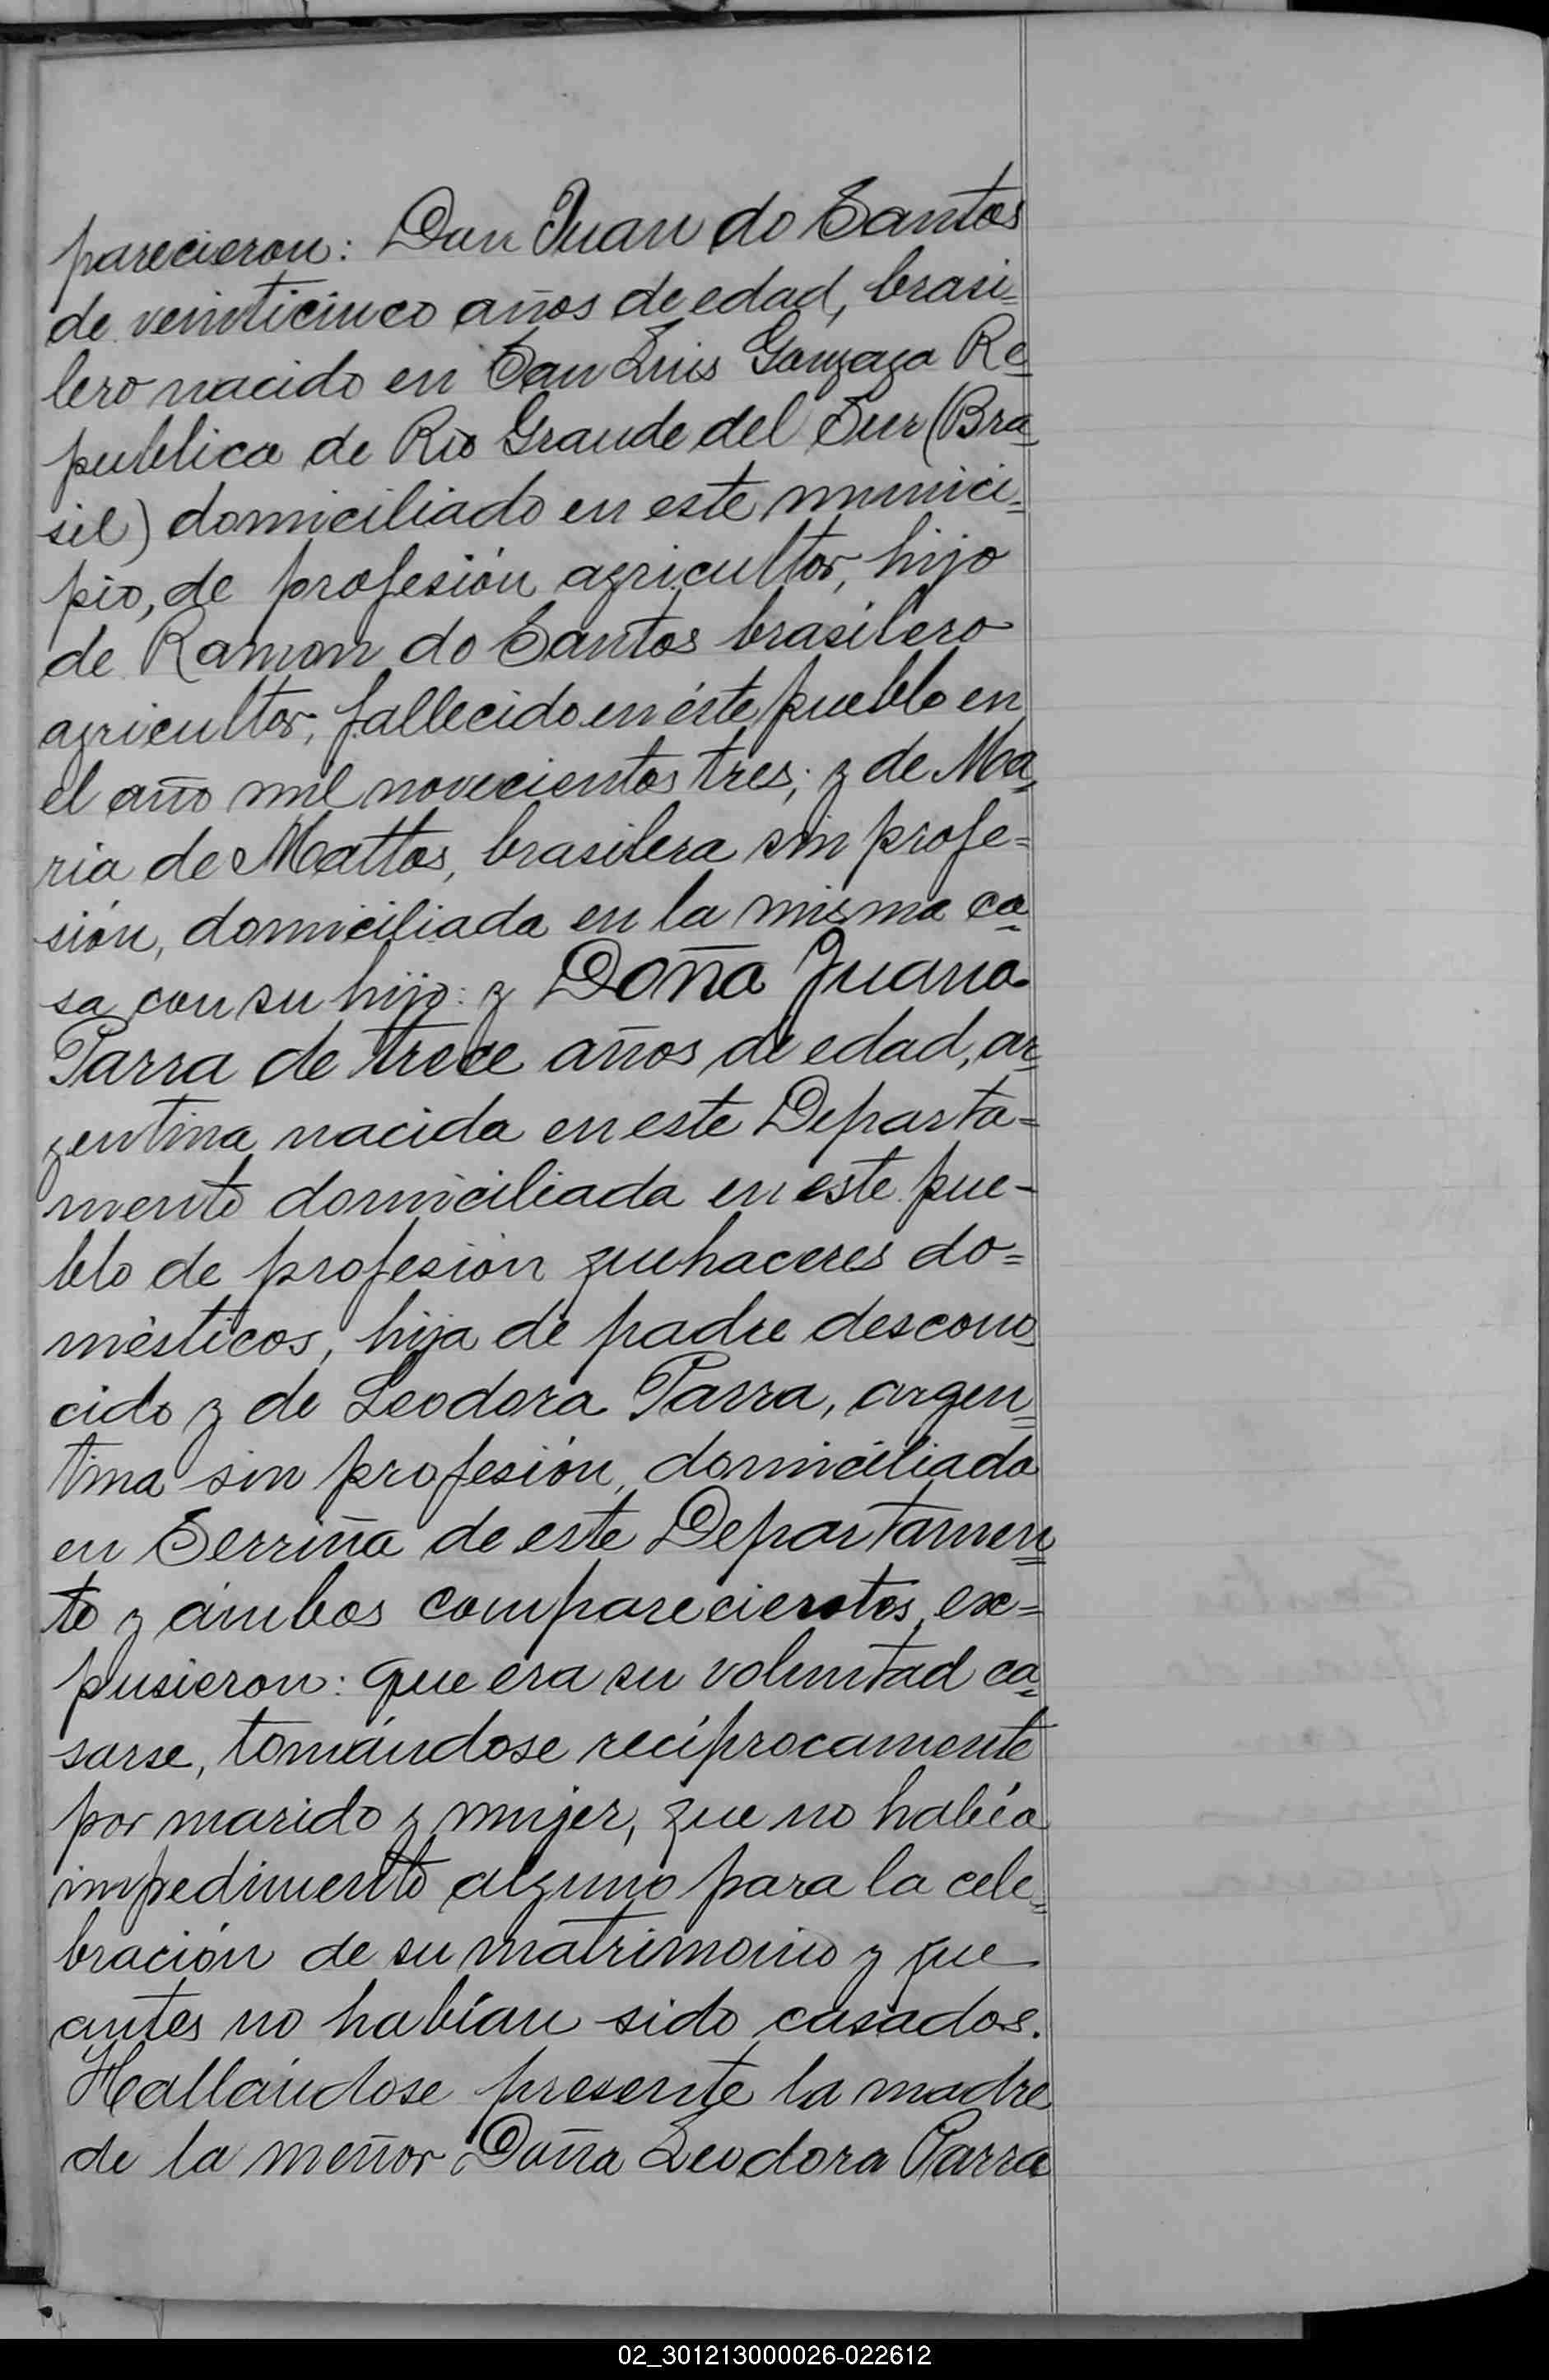 parecieron: Don Juan do Santos
de veinticinco años de edad, brasi=
lero nacido en San Luis Gonzaga Re=
publica de Rio Grande del Sur (Bra=
sil) domiciliado en este munici=
pio, de profesión agricultor, hijo
de Ramon do Santos brasilero
agricultor, fallecido en éste pueblo en
el año mil novecientos tres; y de Ma=
ria de Mattos, brasilera sin profe=
sión, domiciliada en la misma ca=
sa con su hijo: y Doña Juana
Parra de trece años de edad, ar=
gentina nacida en este Departa=
mento domiciliada en este pue-
blo de profesión quehaceres do=
mésticos, hija de padre descono
cido y de Leodora Parra, argen=
tina sin profesión, domiciliada
en Serriña de este Departamen=
to y ámbos comparecientes, ex=
pusieron: que era su voluntad ca=
sarse, tomándose recíprocamente
por marido y mujer, que no había
impedimento alguno para la cele=
bración de su matrimonio y que
antes no habían sido casados.
Hallándose presente la madre
de la menor Doña Leodora Parra
02_301213000026-022612